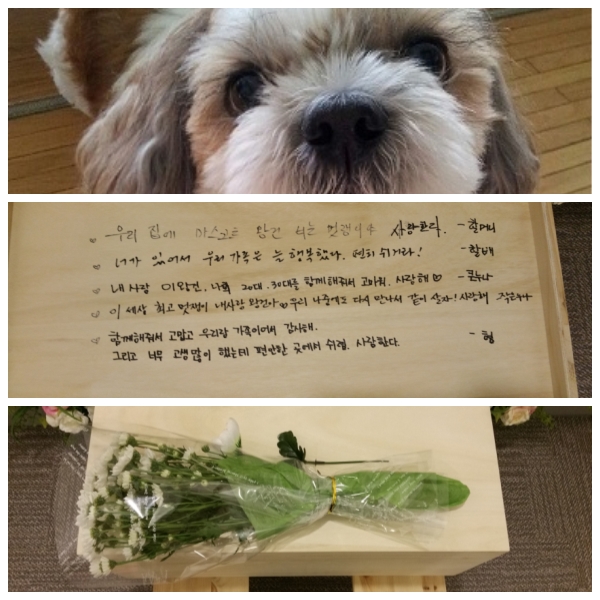 우리 집에 마스코트 왕건 너는 사랑한다. -할머니
너가 있어서 우리 가족은 늘 행복했다. 편히 쉬거라! -할배
내사랑 이왕건, 나의 20대, 30대를 함께해줘서 고마워. 사랑해♡ -큰누나
이 세상 최고 멋쟁이 내사랑 왕건아♡ 우리 나중에도 다시 만나서 같이 살자! 사랑해 작은누나
함께해줘서 고맙고 우리랑 가족이어서 감사해.
그리고 너무 고생많이 했는데 편안한 곳에서 쉬렴. 사랑한다. -형